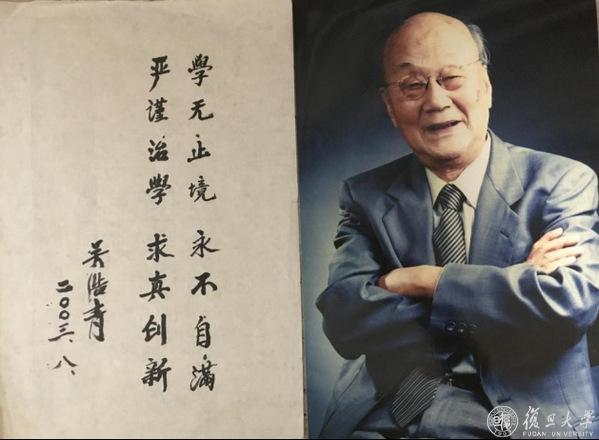 學无止境 永不自滿
严谨治學 求真创新
吴浩青
二〇〇三.八
復旦大學
FUDAN UNIVERSITY